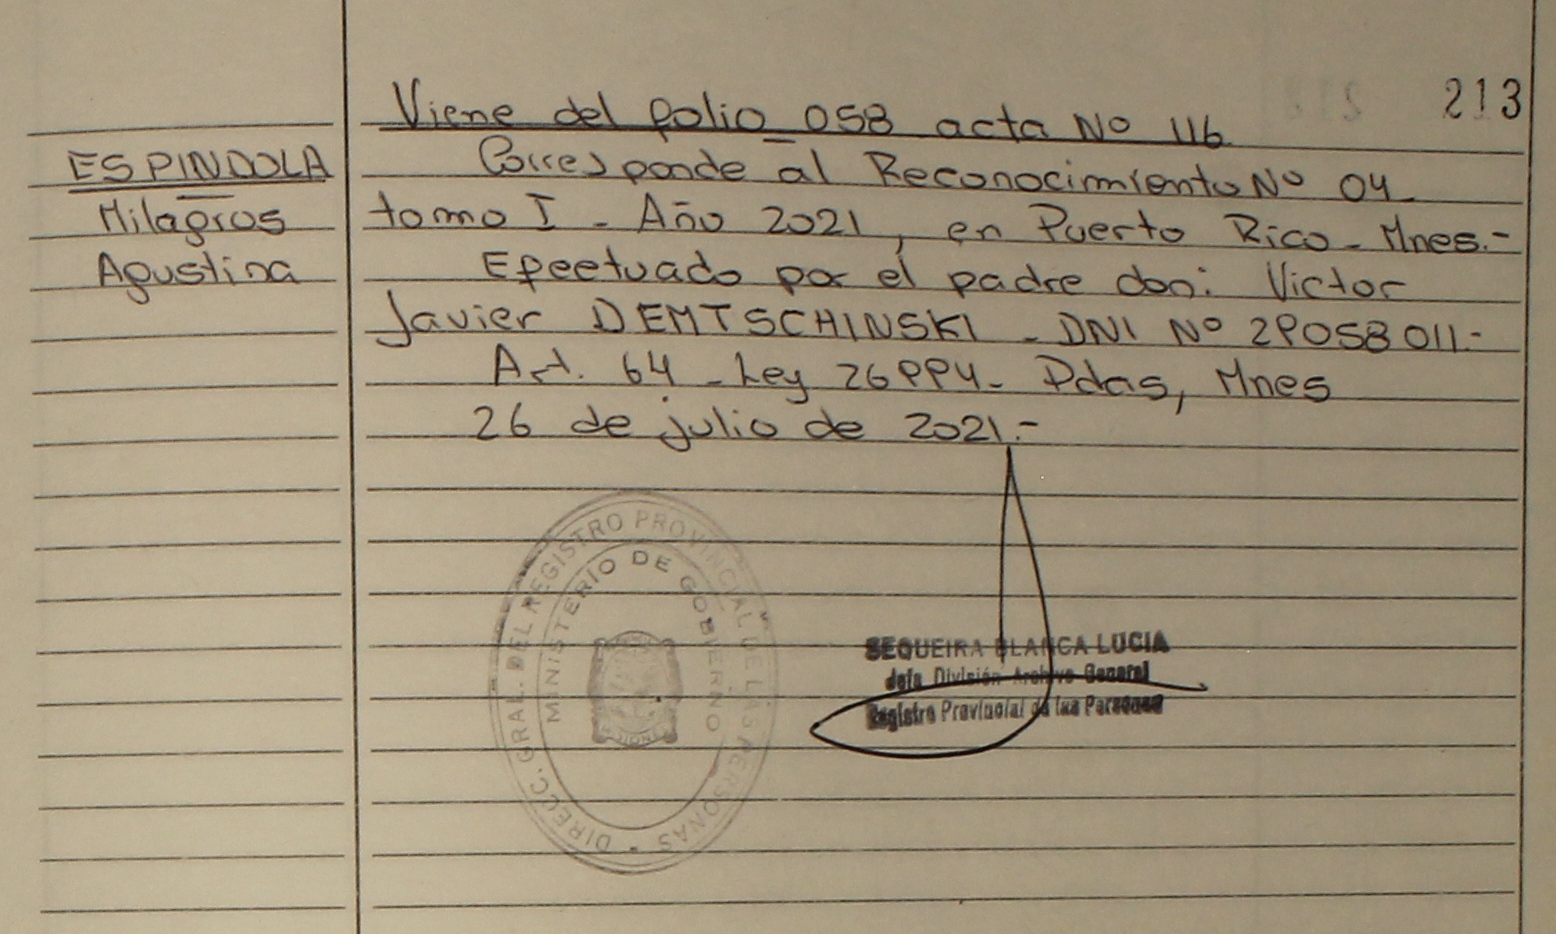 213
Viene del folio 058 acta Nº 116
ESPINDOLA
Milagros
Agustina
Corresponde al Reconocimiento Nº 04
tomo I - Año 2021, en Puerto Rico - Mnes.-
Efectuado por el padre don: Victor
Javier DEMTSCHINSKI - DNI Nº 29058011.-
Art. 64 - Ley 26994 - Pdas, Mnes
26 de julio de 2021.-
DIRECC. GRAL. DEL REGISTRO PROVINCIAL DE LAS PERSONAS
MINISTERIO DE GOBIERNO
SEQUEIRA BLANCA LUCIA
Jefa División Archivo General
Registro Provincial de las Personas